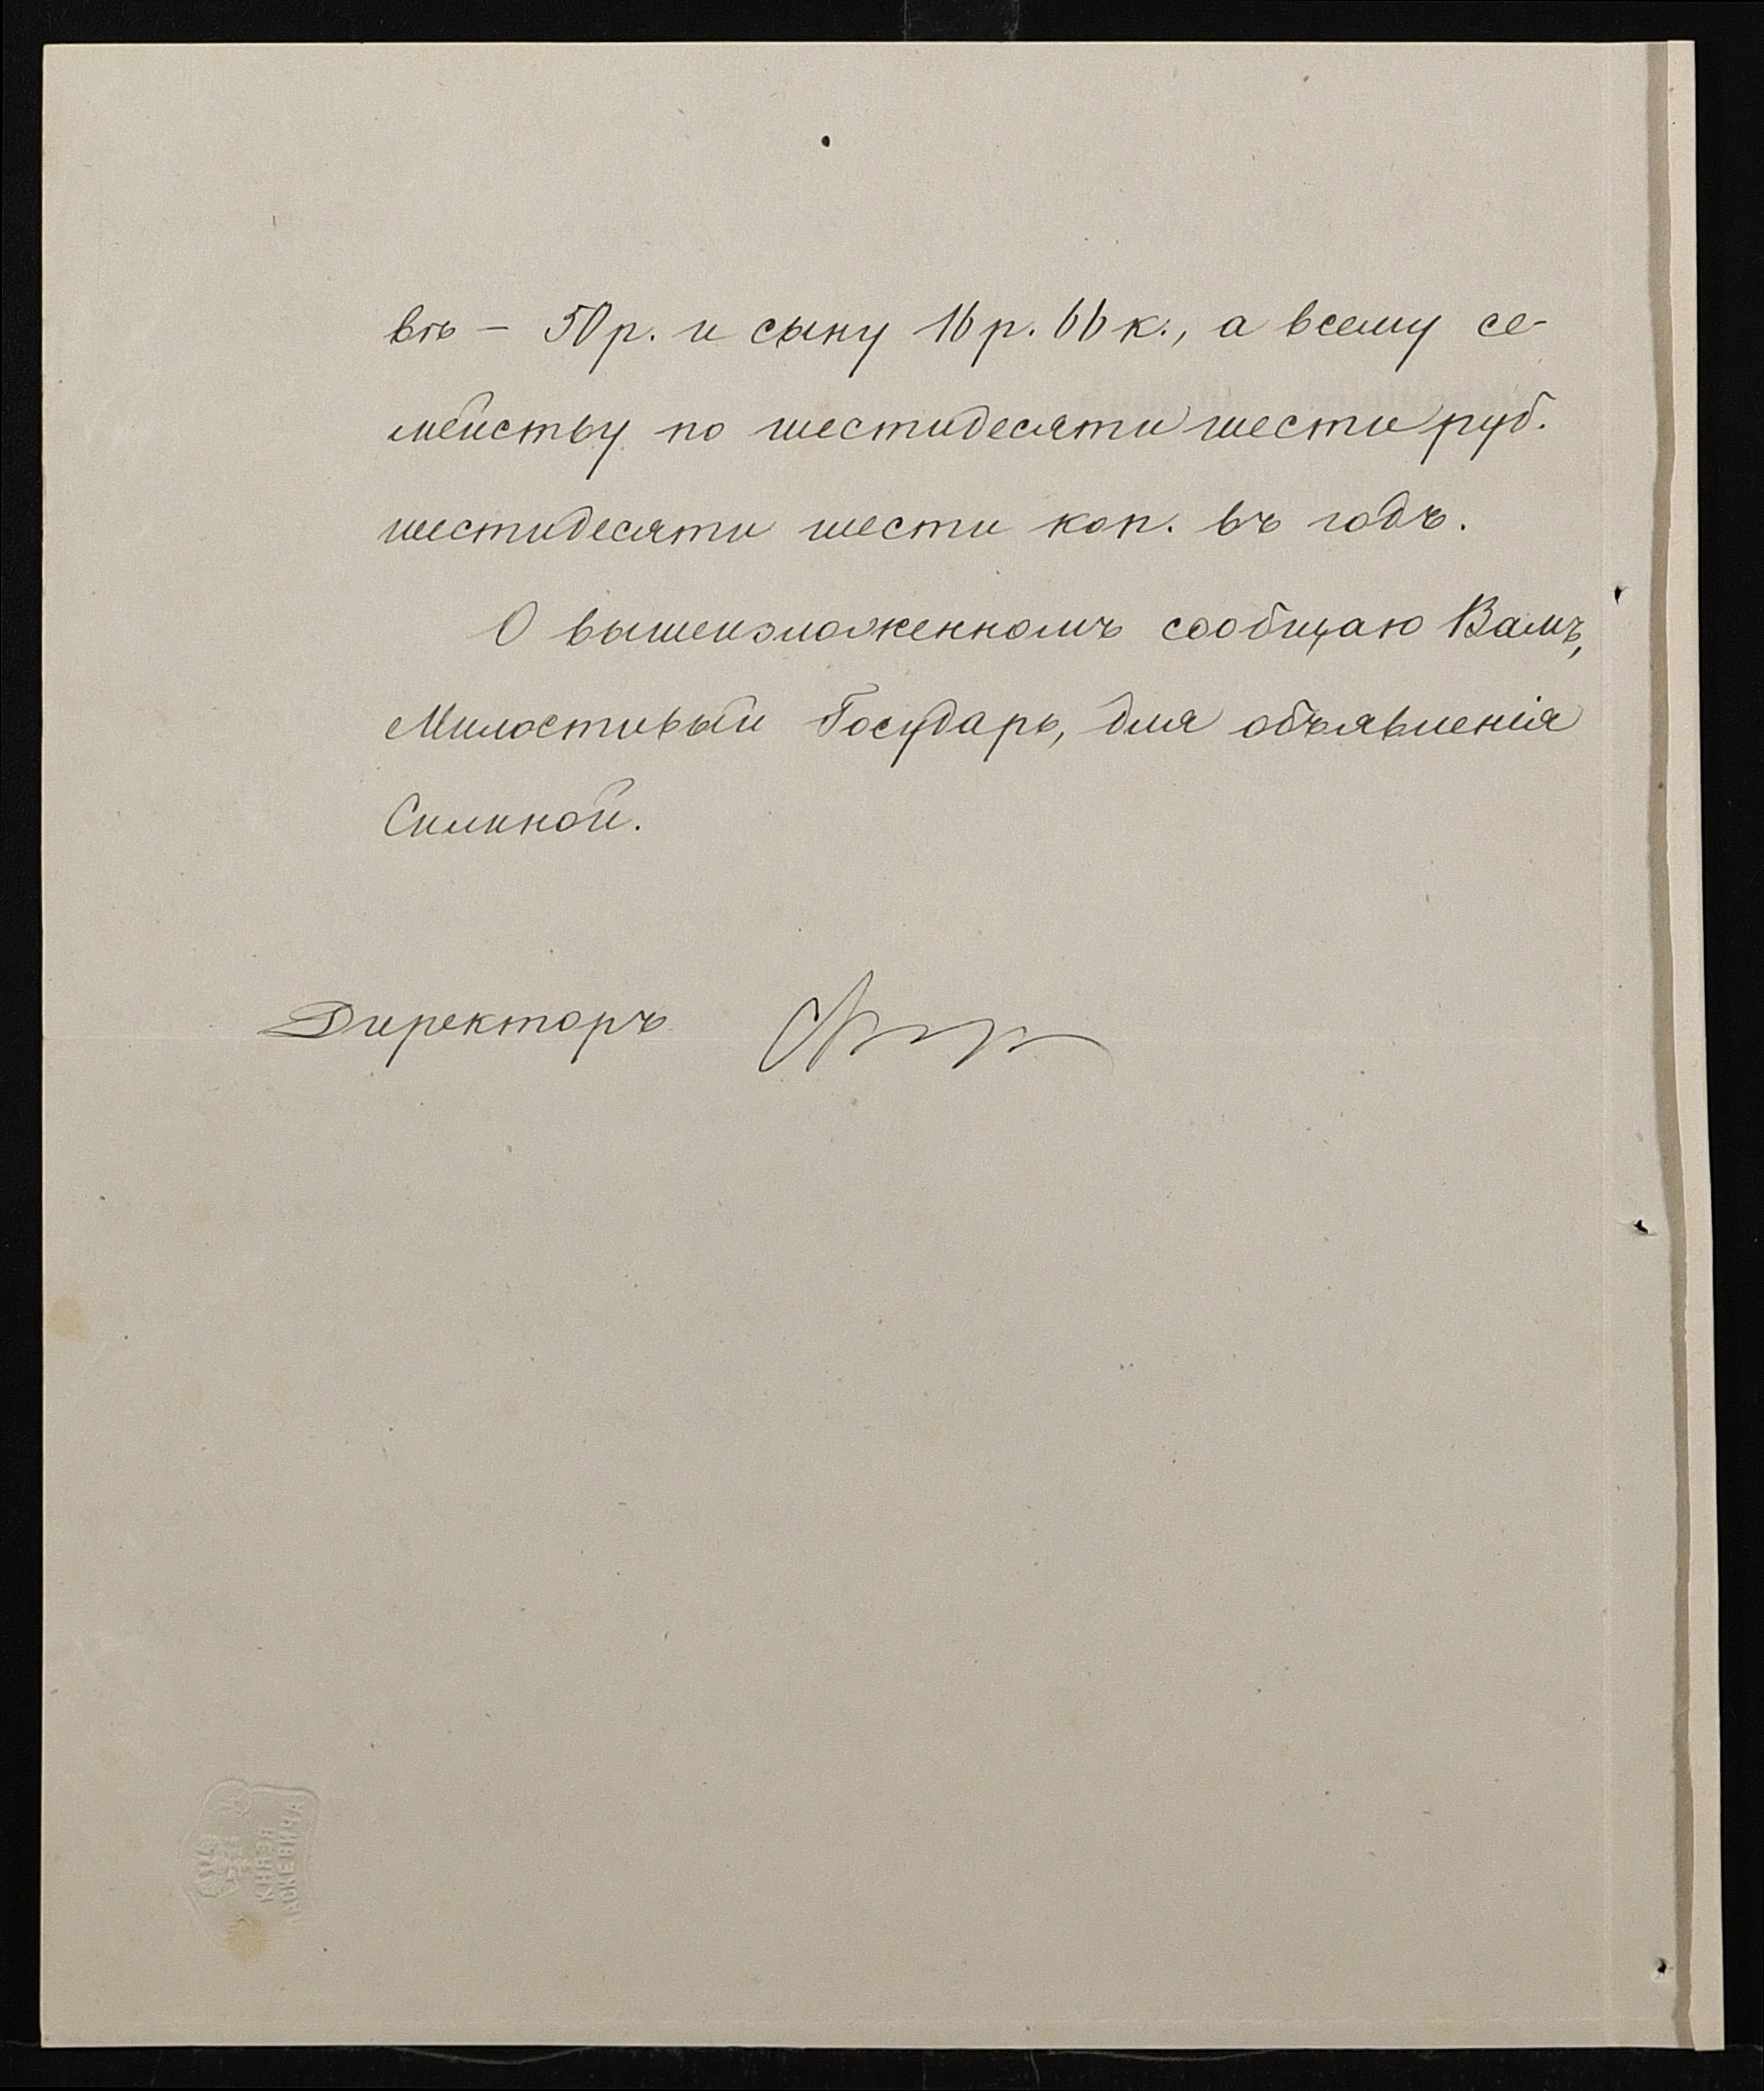 вѣ – 50 р. и сыну 16 р. 66 к., а всему се-
мейству по шестидесяти шести руб.
шестидесяти шести коп. въ годъ.
О вышеизложенномъ сообщаю Вамъ,
Милостивый Государь, для объявленія
Силиной.
Директоръ
КНЯЗЯ
ПАСКЕВИЧА